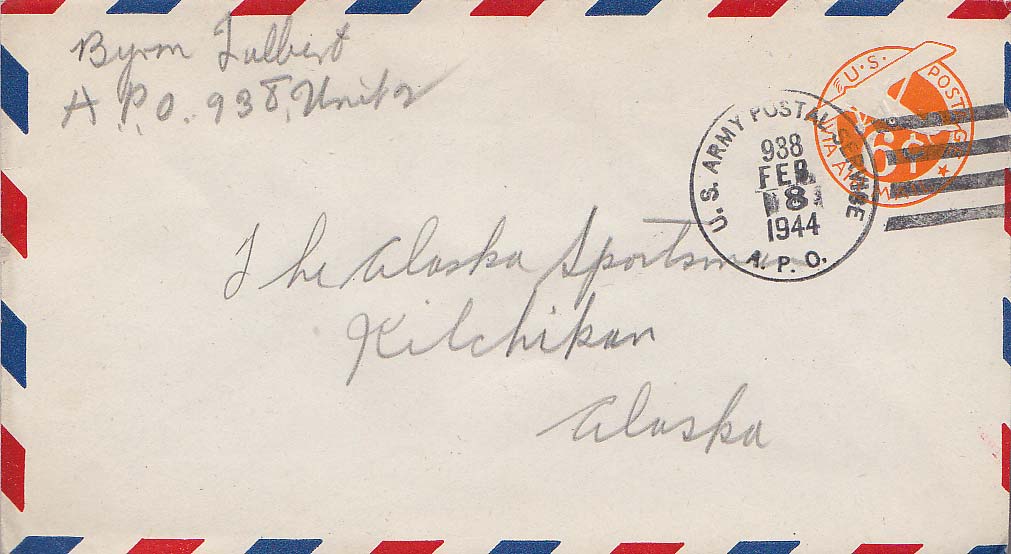 Byron Talbert
A.P.O. 938, Unit 2
U.S. POSTAGE
VIA AIR MAIL
6¢
U.S. ARMY POSTAL SERVICE
938
FEB
8
1944
A.P.O.
The Alaska Sportsman
Kitchikan
Alaska